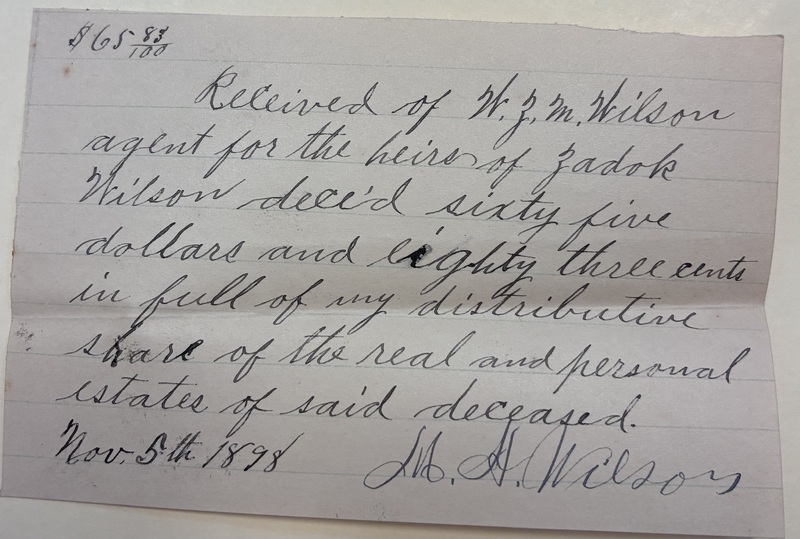 $65 83/100
Received of W. Z. M. Wilson
agent for the heirs of Zadok
Wilson dece'd sixty five
dollars and eighty three cents
in full of my distributive
share of the real and personal
estates of said deceased.
Nov. 5th 1898 M. H. Wilson